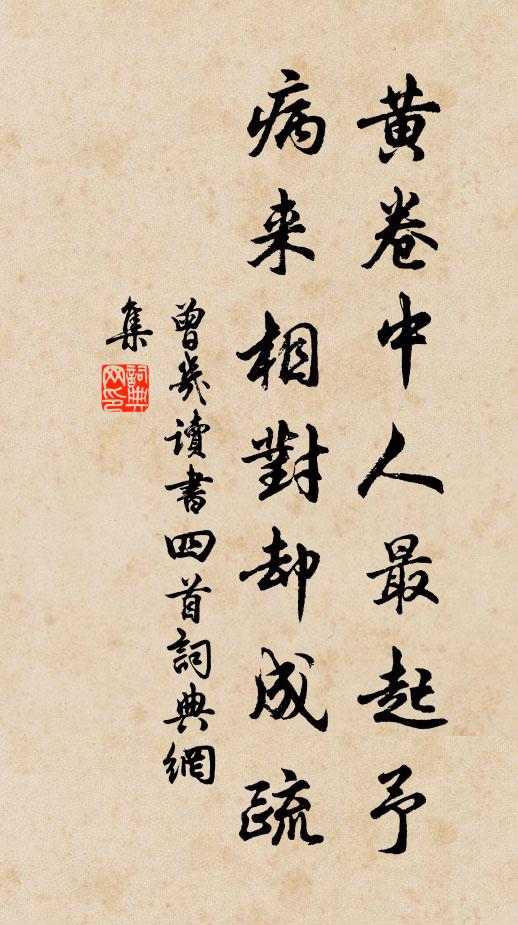 黄卷中人最起予
病来相對却成疏
曾幾讀書四首詞典網
集
詞典網印